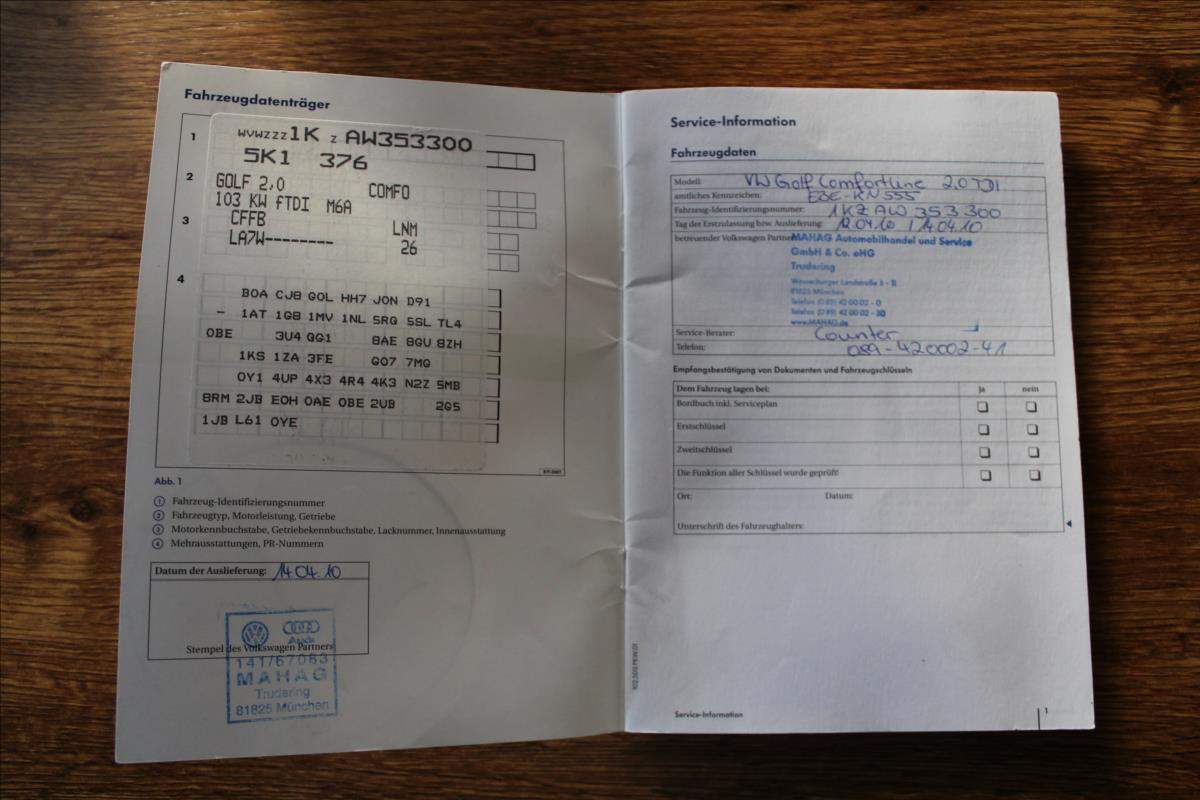 Fahrzeugdatenträger
1
WVWZZZ1K Z AW353300
5K1 376
2
GOLF 2,0 COMFO
103 KW fTDI M6A
3
CFFB LNM
LA7W-------- 26
4
BOA CJB GOL HH7 JON D91
- 1AT 1G8 1MV 1NL 5RG 5SL TL4
OBE 3U4 GG1 8AE 8GU 8ZH
1KS 1ZA 3FE GO7 7MG
OY1 4UP 4X3 4R4 4K3 N2Z 5MB
8RM 2JB EOH OAE OBE 2UB 2G5
1JB L61 OYE
Abb. 1
1 Fahrzeug-Identifizierungsnummer
2 Fahrzeugtyp, Motorleistung, Getriebe
3 Motorkennbuchstabe, Getriebekennbuchstabe, Lacknummer, Innenausstattung
4 Mehrausstattungen, PR-Nummern
Datum der Auslieferung: 14 04. 10
Audi
Stempel des Volkswagen Partners
141/67083
MAHAG
Trudering
81825 München
Service-Information
Fahrzeugdaten
Modell: VW Golf Comfortline 2.0 TDI
amtliches Kennzeichen: EBE-KN 555
Fahrzeug-Identifizierungsnummer: 1KZ AW 353 300
Tag der Erstzulassung bzw. Auslieferung: 12.04.10 / 14.04.10
betreuender Volkswagen Partner MAHAG Automobilhandel und Service
GmbH & Co. oHG
Trudering
Wasserburger Landstraße
81825 München
Telefax (0 89) 42 00 02 - 30
www.MAHAG.de
Service-Berater: Counter
Telefon: 089-420002-41
Empfangsbestätigung von Dokumenten und Fahrzeugschlüsseln
Dem Fahrzeug lagen bei: ja nein
Bordbuch inkl. Serviceplan
Erstschlüssel
Zweitschlüssel
Die Funktion aller Schlüssel wurde geprüft!
Ort: Datum:
Unterschrift des Fahrzeughalters:
Service-Information 1